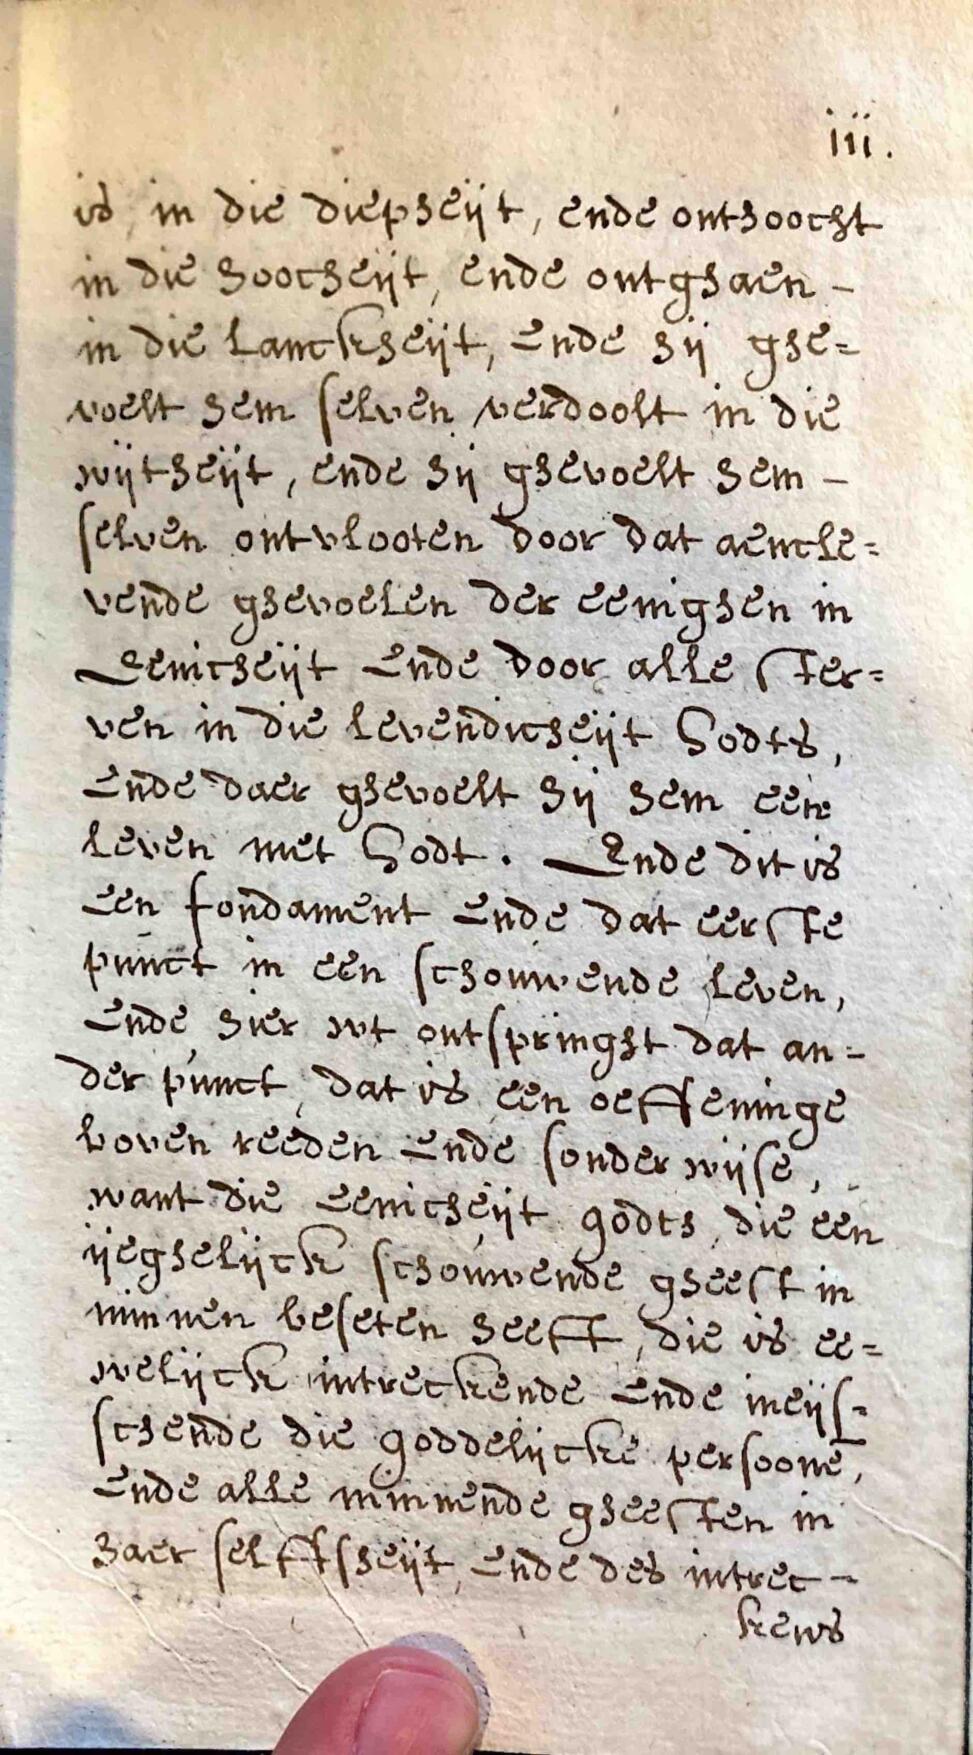 iii.
is, in die diepheijt, ende onthoocht
in die hoocheijt, ende ontghaen -
in die lanckheijt, ende hij ghe=
voelt hem selven verdoolt in die
wijtheijt, ende hij ghevoelt hem -
selven ontvlooten door dat aencle=
vende ghevoelen der eenighen in
Eenicheijt ende door alle ster=
ven in die levendicheijt Godts,
ende daer ghevoelt hij hem een
leven met Godt. Ende dit is
een fondament ende dat eerste
punct in een schouwende leven,
ende hier wt ontspringht dat an=
der punct, dat is een oeffeninge
boven reeden ende sonder wijse,
want die eenicheijt godts, die een
ijeghelijck schouwende gheest in
minnen beseten heeft, die is ee=
welijck intreckende ende ineijs=
schende die goddelijcke persoone,
ende alle minnende gheesten in
haer selffsheijt, ende des intrec-
kens